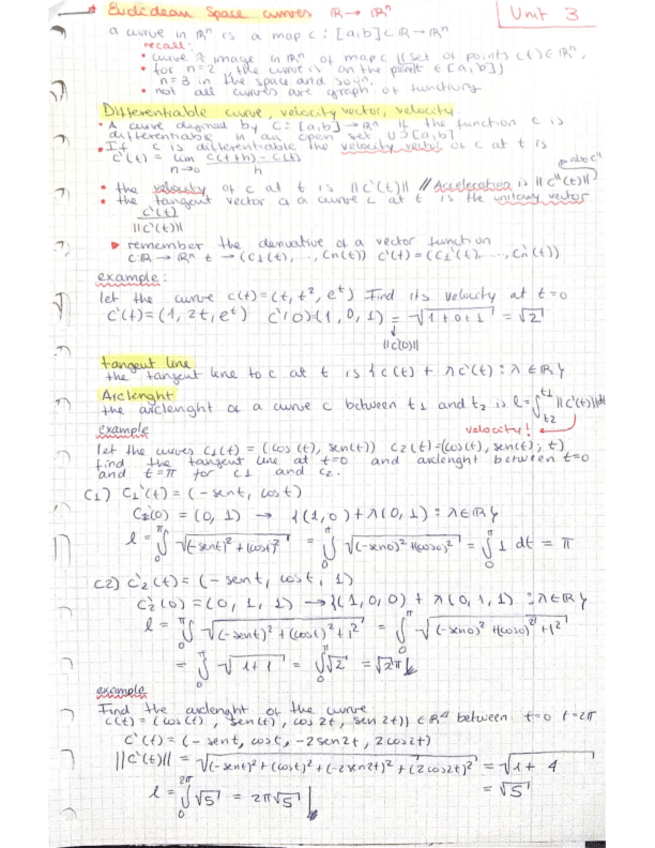 Euclidean Space curves R → Rⁿ
Unit 3
a curve in Rⁿ is a map c : [a,b] ⊂ R → Rⁿ
recall:
• curve ≈ image in Rⁿ of map c (set of points c(t) ∈ Rⁿ,
• for n=2 the curve is on the t ∈ [a,b])
n=3 in the space and so on
• not all curves are graph of functions
Differentiable curve, velocity vector, velocity
• A curve defined by C: [a,b] → Rⁿ if the function c is
differentiable in an open set U ⊃ [a,b]
• If c is differentiable the velocity vector of c at t is
c'(t) = lim c(t+h) - c(t)
n→0 h
• the velocity of c at t is ||c'(t)|| // Acceleration is ||c''(t)||
• the tangent vector a a curve c at t is the unitary vector
c'(t)
||c'(t)||
remember the derivative of a vector function
C: R → Rⁿ t → (c₁(t), ..., cn(t)) c'(t) = (c₁'(t), ..., cn'(t))
example:
let the curve c(t) = (t, t², eᵗ) Find its velocity at t=0
c'(t) = (1, 2t, eᵗ) c'(0) = (1, 0, 1) = √1+0+1 = √2
||c'(0)||
tangent line
the tangent line to c at t is { c(t) + λ c'(t) : λ ∈ R }
Arclenght
the arclenght of a curve c between t1 and t2 is l = ∫ t1 t2 ||c'(t)|| dt
example
velocity!
let the curves c₁(t) = (cos(t), sen(t)) c₂(t) = (cos(t), sen(t), t)
find the tangent line at t=0 and arclenght between t=0
and t=π for c1 and c2.
C1) C₁'(t) = (-sent, cost)
(0) = (0, 1) → {(1,0) + λ(0,1) : λ ∈ R}
l = ∫₀^π √(-sent)² + (cost)² = ∫₀^π √(-sen0)² + (cos0)² = ∫₀^π 1 dt = π
C2) C₂'(t) = (-sent, cost, 1)
C₂'(0) = (0, 1, 1) → {(1,0,0) + λ(0,1,1) : λ ∈ R}
l = ∫₀^π √(-sent)² + (cost)² + 1² = ∫₀^π √(-sen0)² + (cos0)² + 1²
= ∫₀^π √1+1 = ∫₀^π √2 = √2 π
example
Find the arclenght of the curve
c(t) = (cos(t), sen(t), cos 2t, sen 2t)) ∈ R⁴ between t=0 t=2π
c'(t) = (-sent, cost, -2sen2t, 2cos2t)
||c'(t)|| = √(-sent)² + (cost)² + (-2sen2t)² + (2cos2t)² = √1 + 4
l = ∫₀^2π √5 = 2π√5
= √5